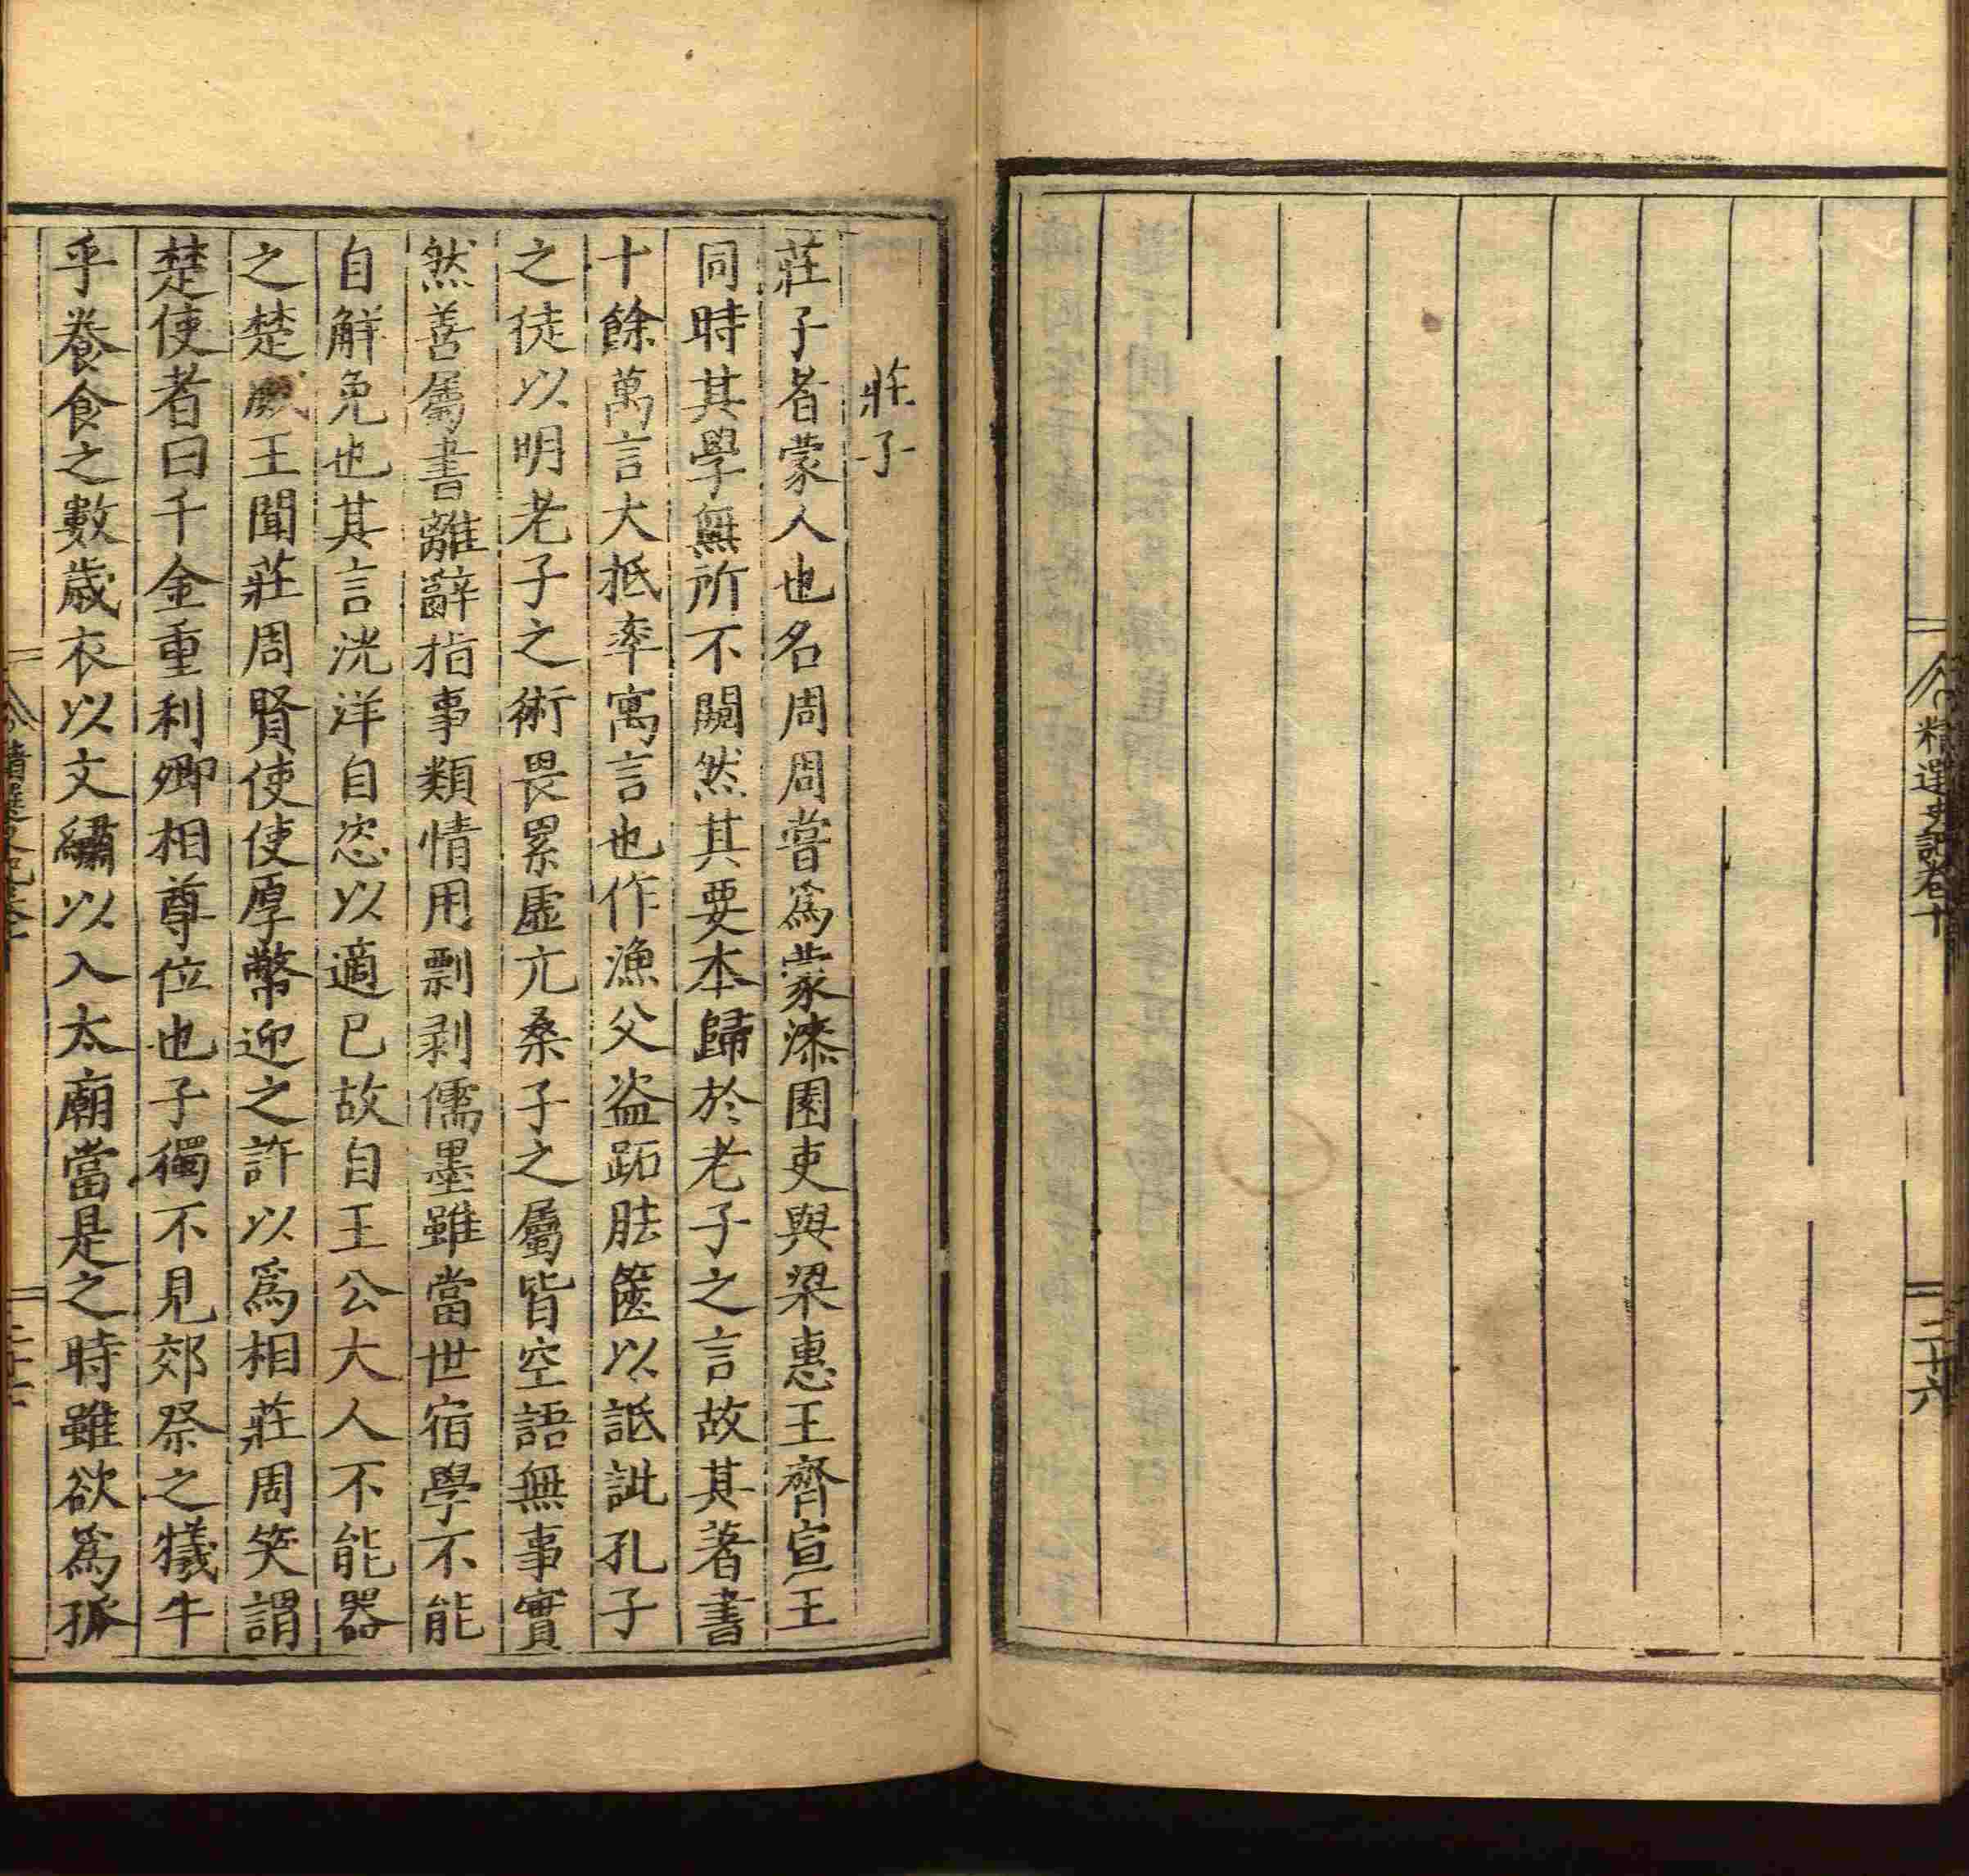 精選史記卷十
二十六
莊子
莊子者蒙人也名周周嘗爲蒙漆園吏與梁惠王齊宣王
同時其學無所不闚然其要本歸於老子之言故其著書
十餘萬言大抵率寓言也作漁父盜跖胠篋以詆訿孔子
之徒以明老子之術畏累虛亢桑子之屬皆空語無事實
然善屬書離辭指事類情用剽剥儒墨雖當世宿學不能
自觧免也其言洸洋自恣以適已故自王公大人不能器
之楚威王聞莊周賢使使厚幣迎之許以爲相莊周笑謂
楚使者曰千金重利卿相尊位也子獨不見郊祭之犠牛
乎養食之數歲衣以文繡以入太廟當是之時雖欲爲孤